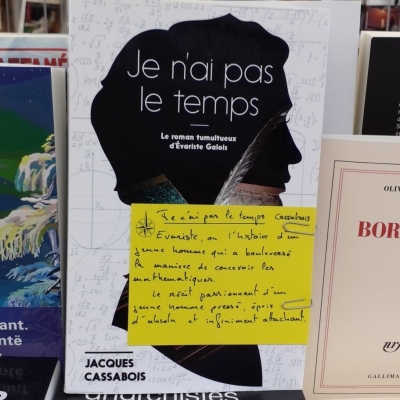 Je n'ai pas
le temps
Le roman tumultueux
d'Évariste Galois
Je n'ai pas le temps Cassabois
Evariste, ou l'histoire d'un
jeune homme qui a bouleversé
la manière de concevoir les
mathématiques.
Le récit passionnant d'un
jeune homme pressé, épris
d'absolu et infiniment attachant.
JACQUES
CASSABOIS
ant.
nté
OLIV
BOR
nrf
GALLIMA
anarchistes